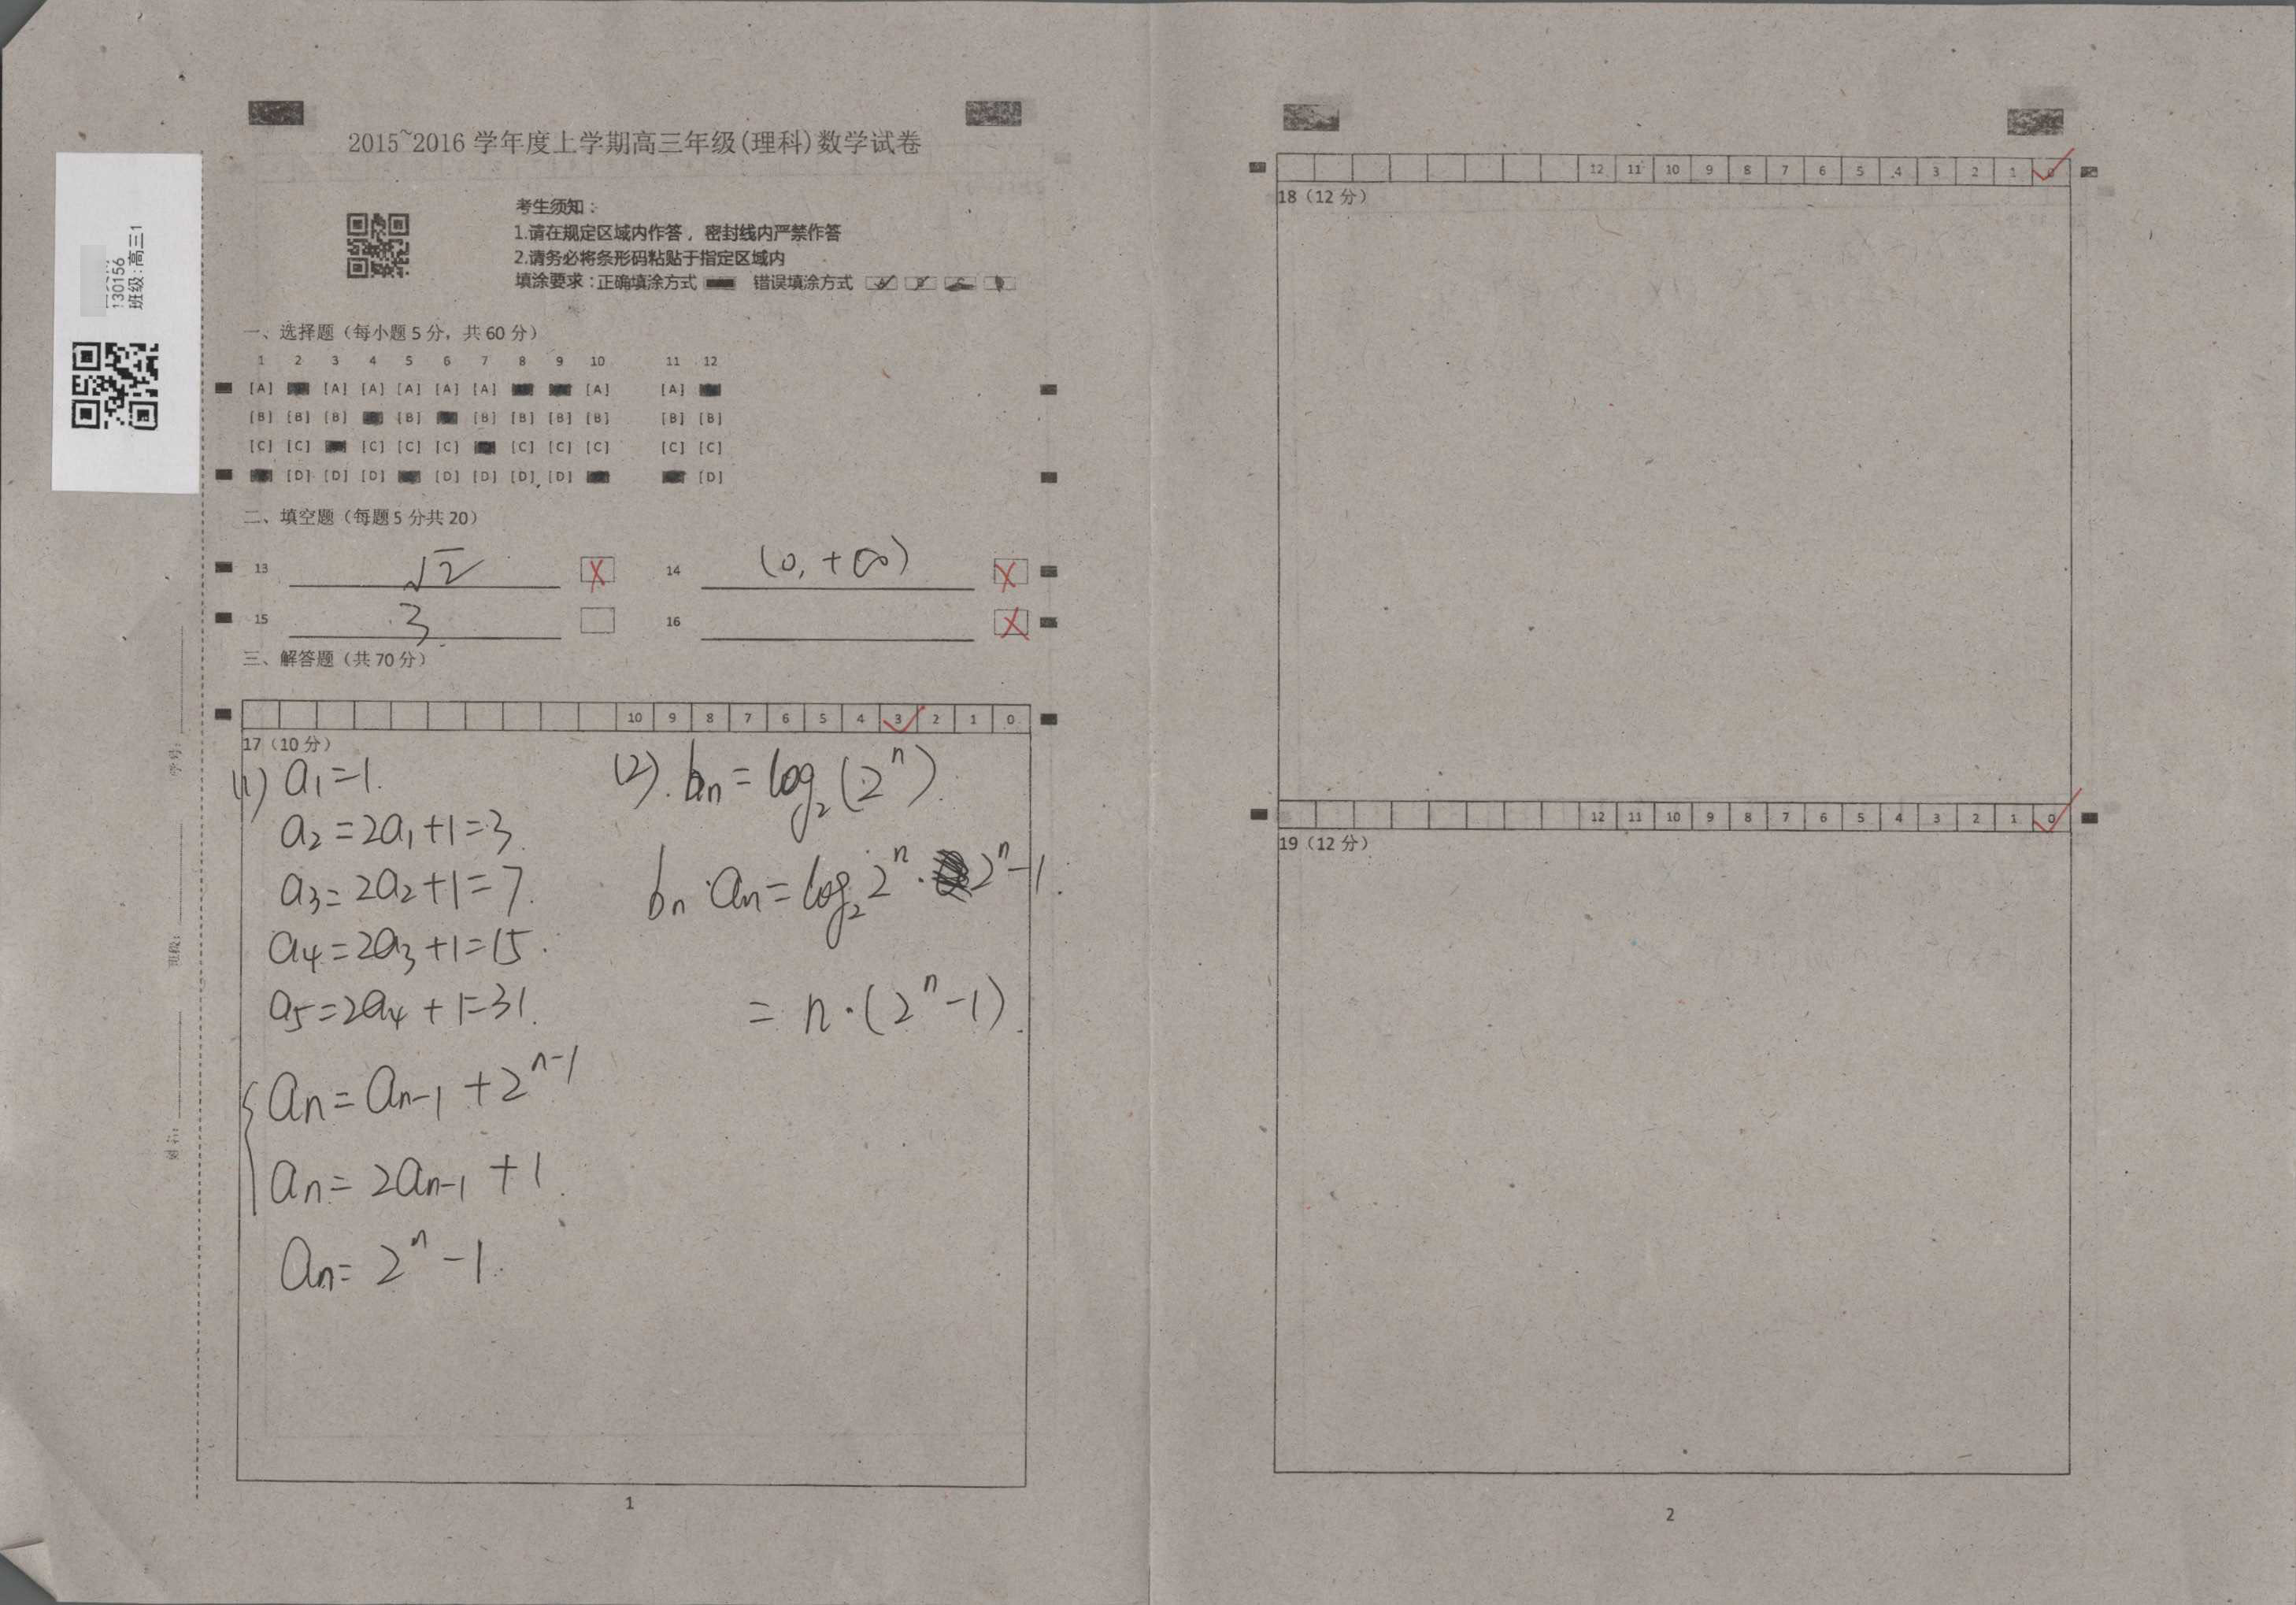 2015~2016 学年度上学期高三年级(理科)数学试卷
130156
班级:高三1
考生须知:
1.请在规定区域内作答，密封线内严禁作答
2.请务必将条形码粘贴于指定区域内
填涂要求:正确填涂方式 错误填涂方式
一、选择题（每小题5分，共60分）
1 2 3 4 5 6 7 8 9 10 11 12
[A] [A] [A] [A] [A] [A] [A] [A]
[B] [B] [B] [B] [B] [B] [B] [B] [B] [B]
[C] [C] [C] [C] [C] [C] [C] [C] [C] [C]
[D] [D] [D] [D] [D] [D] [D] [D]
二、填空题（每题5分共20）
13 √2 14 (0, +∞)
15 3 16
三、解答题（共70分）
10 9 8 7 6 5 4 3 2 1 0
17（10分）
(1) a₁=1.
a₂=2a₁+1=3.
a₃=2a₂+1=7.
a₄=2a₃+1=15.
a₅=2a₄+1=31.
aₙ=aₙ₋₁+2ⁿ⁻¹
aₙ=2aₙ₋₁+1.
aₙ=2ⁿ-1.
(2). bₙ=log₂(2ⁿ).
bₙ·aₙ=log₂2ⁿ·2ⁿ-1.
=n·(2ⁿ-1).
学号:
班级:
姓名:
1
12 11 10 9 8 7 6 5 4 3 2 1
18（12分）
12 11 10 9 8 7 6 5 4 3 2 1 0
19（12分）
2